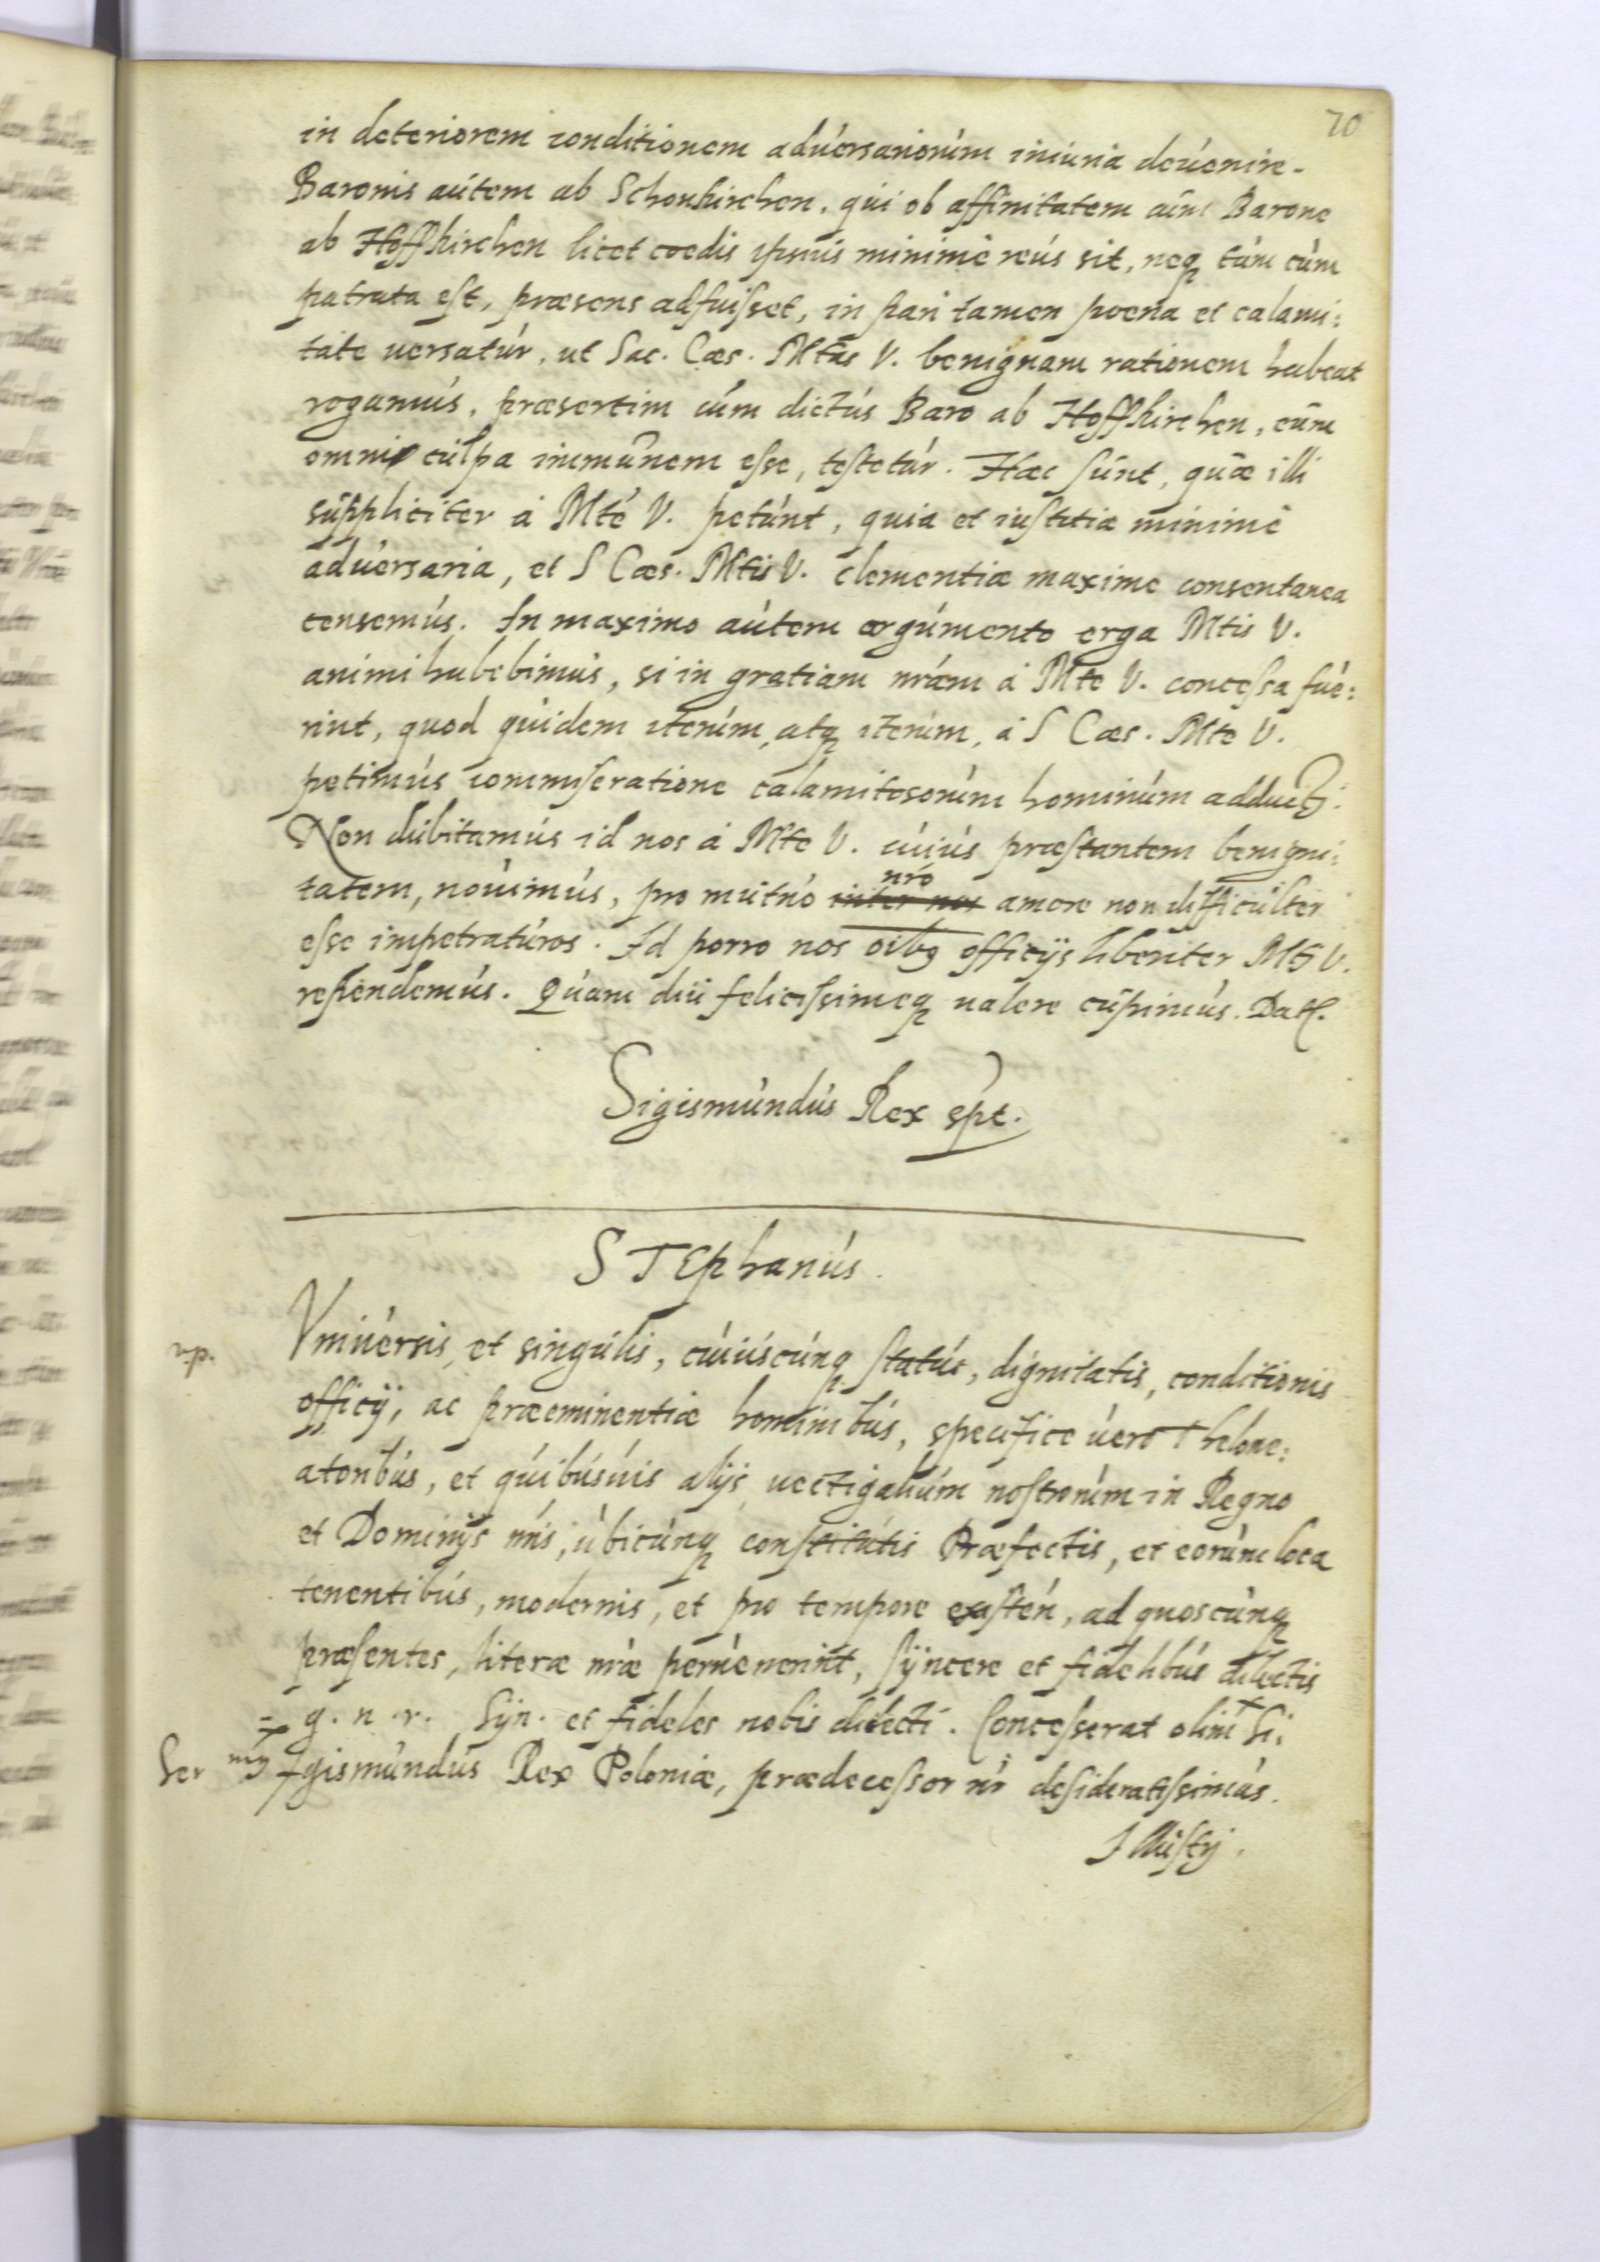 70
in deteriorem conditionem adúersariorúm iniuria deúenire.
Baronis aútem ab Schonkirchen, qui ob affinitatem cúm Barone
ab Hoffkirchen licet cœdis ipsius minimè reús sit, neq túm cúm
patrata est, præsens adfuisset, in pari tamen poena et calami:
tate uersatúr, ut Sac. Cæs. Mtas V. benignam rationem habeat
rogamús, præsertim cúm dictús Baro ab Hoffkirchen, eúm
omni cúlpa immúnem esse, testetúr. Hæc súnt, quæ illi
súppliciter à Mte V. petúnt, quia et iustitiæ minimè
adúersaria, et S Cæs. Mtis V. clementiæ maxime consentanea
censemús. In maximo aútem argúmento erga Mtis V.
animi habebimús, si in gratiam nrám à Mte V. concessa fúe:
rint, quod quidem iterúm, atq iterúm, à S Cæs. Mte V.
petimús commiseratione calamitosorúm hominúm addúcti.
Non dúbitamús id nos à Mte V. cúiús præstantem benigni:
tatem, noúimús, pro mutúo inter nos nrò amore non difficúlter
esse impetratúros. Id porro nos oibq officÿs libenter Mti V.
rependemús. Qúam diú felicissimeq ualere cúpimús. Dat.
Sigismúndús Rex spt.
STEphanús.
v.p.
Vniúersis, et singúlis, cúiúscúnq statús, dignitatis, conditionis
officÿ, ac præeminentiæ hominibús, specifice úero Thelone:
atoribús, et qúibúsuis alÿs, uectigaliúm nostrorúm in Regno
et Dominÿs nris, úbicúnq constitútis Præfectis, et eorúm loca
tenentibús, modernis, et pro tempore existeń, ad quoscúnq
præsentes, literæ nræ perúenerint, sÿncere et fidelibús dilectis
g. n. r. Sÿn. et fideles nobis dilecti. Concesserat olim Si:
Ser mq gismúndús Rex Poloniæ, prædecessor nr desideratissimús.
Illústj.